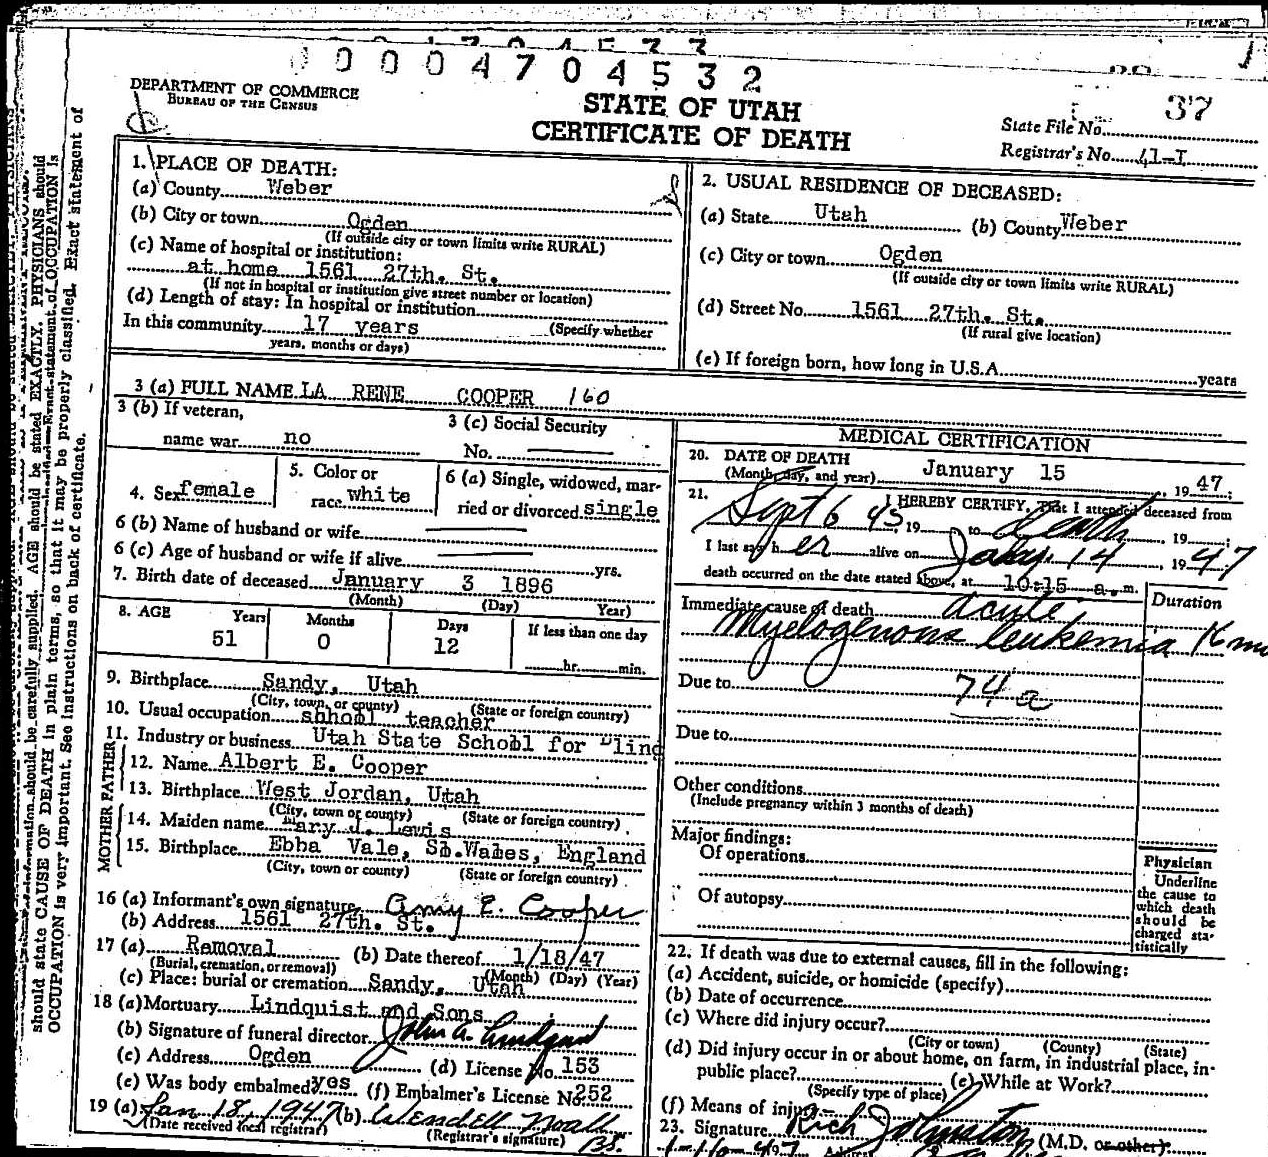 0 0 0 4 7 0 4 5 3 2
DEPARTMENT OF COMMERCE
BUREAU OF THE CENSUS
STATE OF UTAH
CERTIFICATE OF DEATH
State File No. 37
Registrar's No. 41-I
1. PLACE OF DEATH:
(a) County Weber
(b) City or town Ogden
(If outside city or town limits write RURAL)
(c) Name of hospital or institution:
at home 1561 27th. St.
(If not in hospital or institution give street number or location)
(d) Length of stay: In hospital or institution
In this community 17 years (Specify whether
years, months or days)
2. USUAL RESIDENCE OF DECEASED:
(a) State Utah (b) County Weber
(c) City or town Ogden
(If outside city or town limits write RURAL)
(d) Street No. 1561 27th. St.
(If rural give location)
(e) If foreign born, how long in U.S.A. years
3 (a) FULL NAME LA RENE COOPER 160
3 (b) If veteran,
name war no
3 (c) Social Security
No.
4. Sex female
5. Color or
race white
6 (a) Single, widowed, mar-
ried or divorced single
6 (b) Name of husband or wife
6 (c) Age of husband or wife if alive yrs.
7. Birth date of deceased January 3 1896
(Month) (Day) Year)
8. AGE Years Months Days If less than one day
51 0 12 hr. min.
9. Birthplace Sandy, Utah
(City, town, or county) (State or foreign country)
10. Usual occupation shhoml teacher
11. Industry or business Utah State School for Blind
FATHER
12. Name Albert E. Cooper
13. Birthplace West Jordan, Utah
(City, town or county) (State or foreign country)
MOTHER
14. Maiden name Mary J. Lewis
15. Birthplace Ebba Vale, So.Wales, England
(City, town or county) (State or foreign country)
16 (a) Informant's own signature Amy E. Cooper
(b) Address 1561 27th. St.
17 (a) Removal (b) Date thereof 1/18/47
(Burial, cremation, or removal) (Month) (Day) (Year)
(c) Place: burial or cremation Sandy, Utah
18 (a) Mortuary Lindquist and Sons
(b) Signature of funeral director John A. Lindquist
(c) Address Ogden (d) License No. 153
(e) Was body embalmed? yes (f) Embalmer's License No. 252
19 (a) Jan 18, 1947 (b) Wendell Noall
(Date received local registrar) (Registrar's signature) BS.
MEDICAL CERTIFICATION
20. DATE OF DEATH
(Month, day, and year) January 15, 1947;
21. I HEREBY CERTIFY, That I attended deceased from
Sept 6 45, 19 to death, 19 ;
I last saw h er alive on Jany. 14, 1947
death occurred on the date stated above, at 10:15 a.m.
Duration
Immediate cause of death acute
Myelogenous leukemia 16 mo
Due to 74a
Due to
Other conditions
(Include pregnancy within 3 months of death)
Major findings:
Of operations
Of autopsy
Physician
Underline
the cause to
which death
should be
charged sta-
tistically
22. If death was due to external causes, fill in the following:
(a) Accident, suicide, or homicide (specify)
(b) Date of occurrence
(c) Where did injury occur?
(City or town) (County) (State)
(d) Did injury occur in or about home, on farm, in industrial place, in-
public place? (e) While at Work?
(Specify type of place)
(f) Means of injury
23. Signature Rich Johnston (M.D. or other)
1-16-47
should state CAUSE OF DEATH in plain terms, so that it may be properly classified. Exact statement of
OCCUPATION is very important. See instructions on back of certificate.